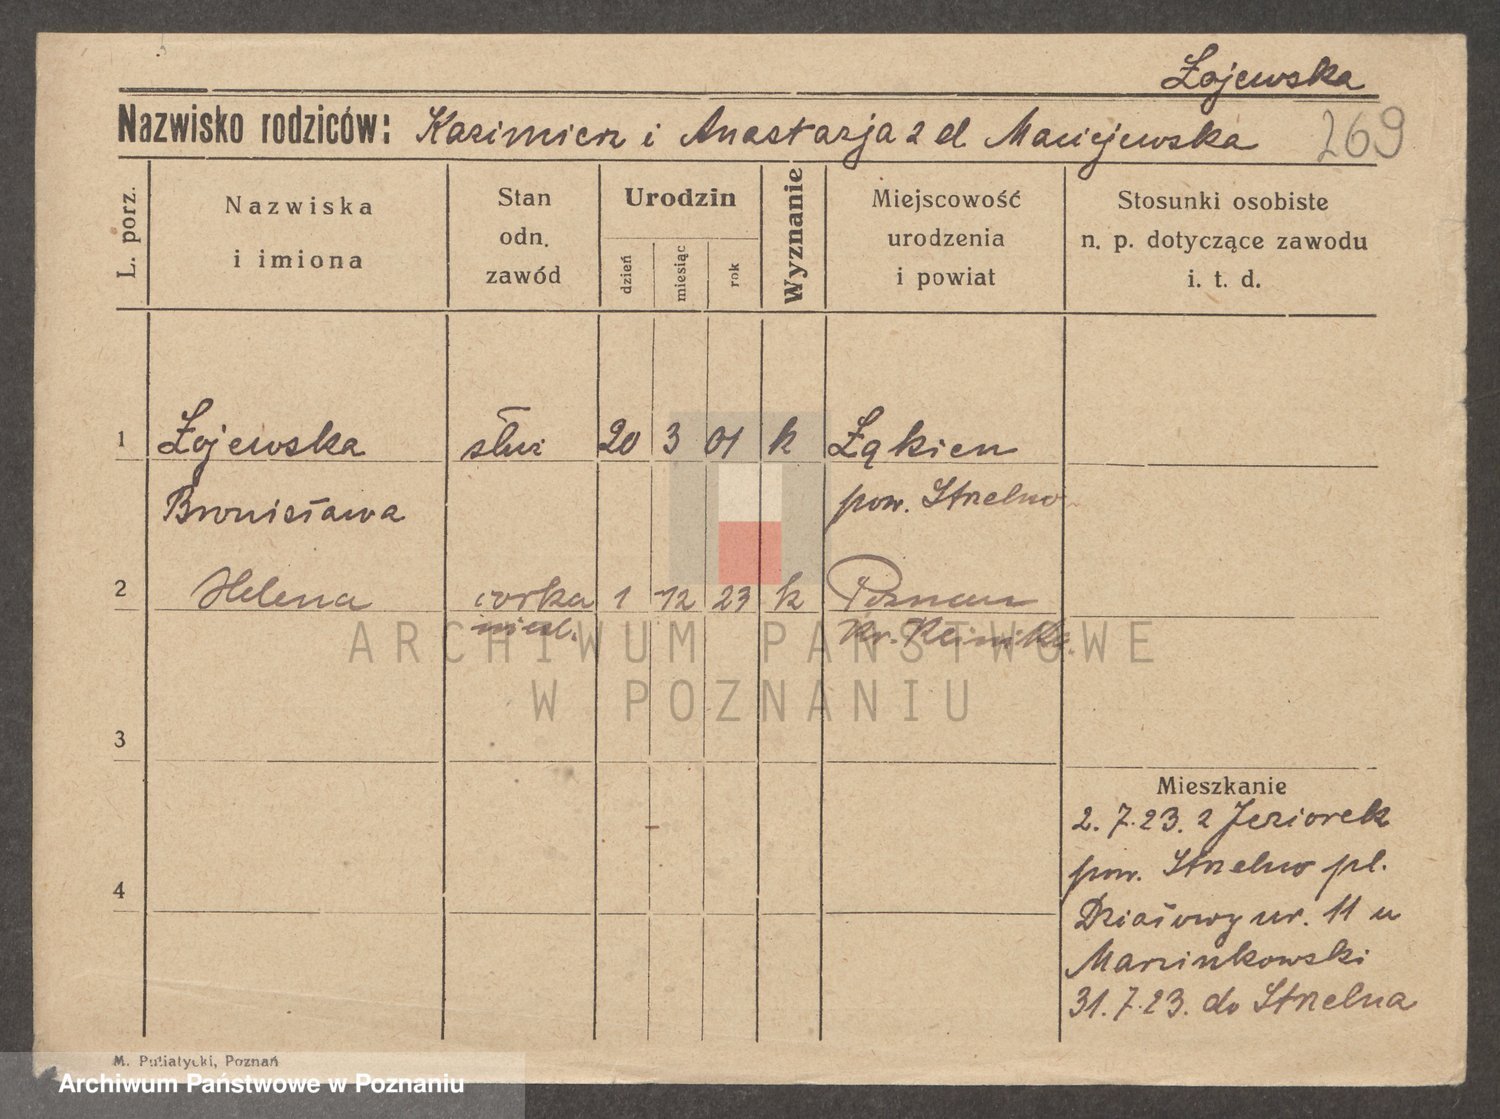 Łojewska
Nazwisko rodziców: Kazimierz i Anastazja z d. Maciejewska
269
L. porz.
Nazwiska
i imiona
Stan
odn.
zawód
Urodzin
dzień
miesiąc
rok
Wyznanie
Miejscowość
urodzenia
i powiat
Stosunki osobiste
n. p. dotyczące zawodu
i. t. d.
1 Łojewska służ 20 3 01 k Łąkien
Bronisława pow. Strzelno
2 Helena córka 1 12 23 k Poznań
niesl. Kr.
ARCHIWUM PAŃSTWOWE
W POZNANIU
3
Mieszkanie
2. 7. 23. z Jeziorek
pow. Strzelno pl.
4
Działowy nr. 11 u
Marcinkowski
31. 7. 23. do Strzelna
M. Putiatycki, Poznań
Archiwum Państwowe w Poznaniu